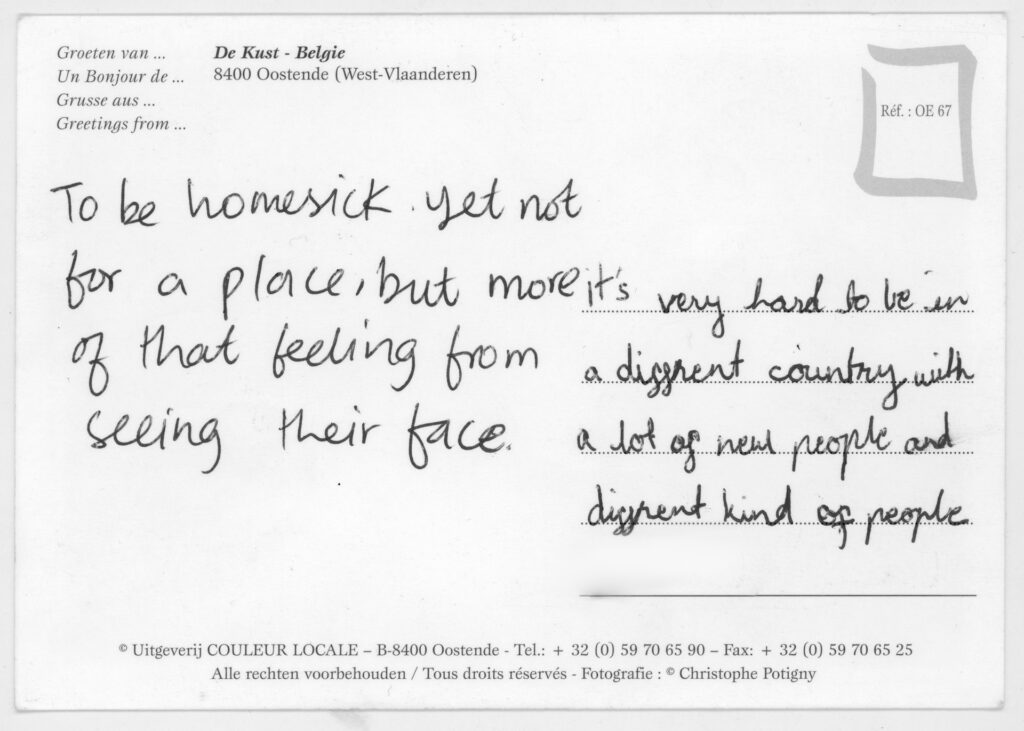 Groeten van ...
Un Bonjour de ...
Grusse aus ...
Greetings from ...
De Kust - Belgie
8400 Oostende (West-Vlaanderen)
Réf. : OE 67
To be homesick. yet not
for a place, but more
of that feeling from
seeing their face.
it's very hard to be in
a diffrent country with
a lot of new people and
diffrent kind of people
© Uitgeverij COULEUR LOCALE – B-8400 Oostende - Tel.: + 32 (0) 59 70 65 90 – Fax: + 32 (0) 59 70 65 25
Alle rechten voorbehouden / Tous droits réservés - Fotografie : © Christophe Potigny